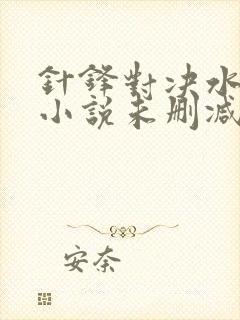 針鋒對決水
小說未刪減
安奈